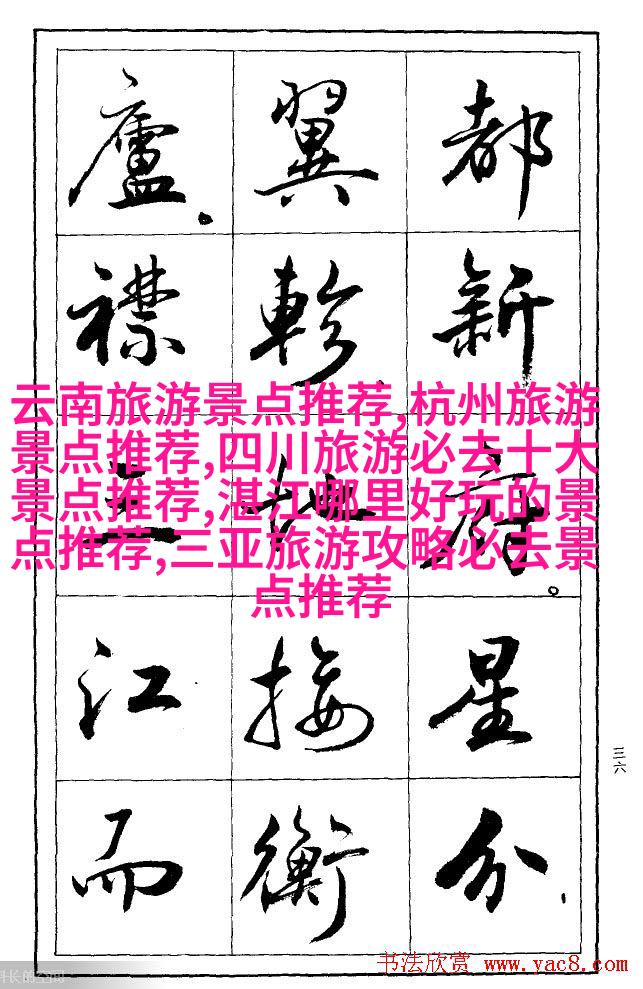 都新府。星分
翼軫、地接衡
廬。襟三江而
云南旅游景点推荐,杭州旅游
景点推荐,四川旅游必去十大
景点推荐,湛江哪里好玩的景
点推荐,三亚旅游攻略必去景
点推荐
三六
书法欣赏 www.yac8.com
长的空间